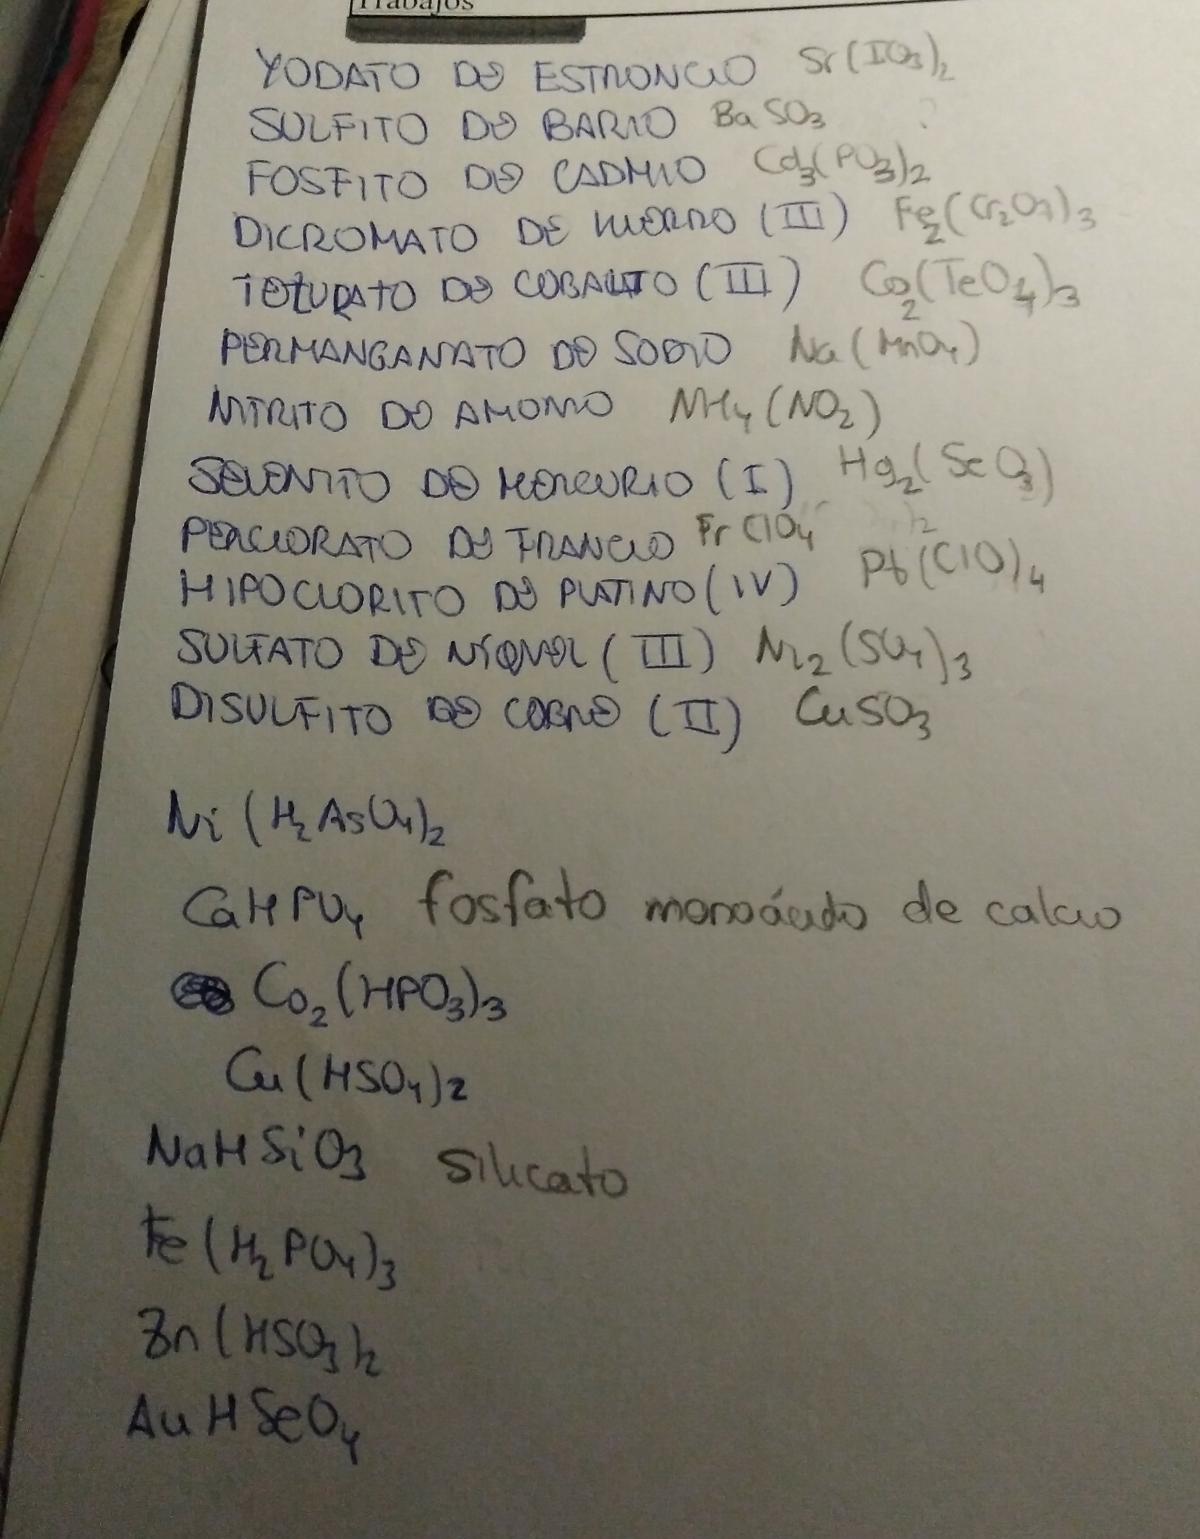 Trabajos
YODATO DE ESTRONCIO Sr(IO₃)₂
SULFITO DE BARIO BaSO₃ ?
FOSFITO DE CADMIO Cd₃(PO₃)₂
DICROMATO DE HIERRO (III) Fe₂(Cr₂O₇)₃
TELURATO DE COBALTO (III) Co₂(TeO₄)₃
PERMANGANATO DE SODIO Na(MnO₄)
NITRITO DE AMONIO NH₄(NO₂)
SELENITO DE MERCURIO (I) Hg₂(SeO₃)
PERCLORATO DE FRANCIO FrClO₄
HIPOCLORITO DE PLATINO (IV) Pt(ClO)₄
SULFATO DE NÍQUEL (III) Ni₂(SO₄)₃
DISULFITO DE COBRE (II) CuSO₃
Ni(H₂AsO₄)₂
CaHPO₄ fosfato monoácido de calcio
Co₂(HPO₃)₃
Cu(HSO₄)₂
NaHSiO₃ silicato
Fe(H₂PO₄)₃
Zn(HSO₃)₂
AuHSeO₄